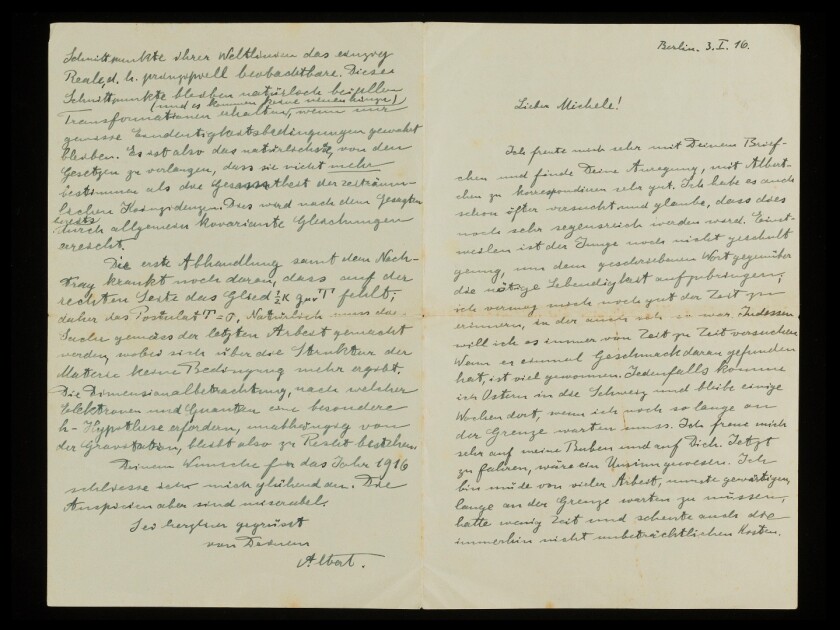 Schnittpunkte ihrer Weltlinien das einzig
Reale, d. h. prinzipiell beobachtbare. Diese
Schnittpunkte bleiben natürlich bei allen
(und es kommen keine neuen hinzu)
Transformationen erhalten, wenn nur
gewisse Eindeutigkeitsbedingungen gewahrt
bleiben. Es ist also das natürlichste, von den
Gesetzen zu verlangen, dass sie nicht mehr
bestimmen als die Gesamtheit der zeiträum-
lichen Koinzidenzen. Dies wird nach dem Gesagten
bereits durch allgemein kovariante Gleichungen
erreicht.
Die erste Abhandlung samt dem Nach-
trag krankt noch daran, dass auf der
rechten Seite das Glied ½ κ gμν T fehlt;
daher das Postulat T = 0. Natürlich muss die
Sache gemäss der letzten Arbeit gemacht
werden, wobei sich über die Struktur der
Materie keine Bedingung mehr ergibt.
Die Dimensionalbetrachtung, nach welcher
Elektronen und Quanten eine besondere
h-Hypothese erfordern, unabhängig von
der Gravitation, bleibt also zu Recht bestehen.
Deinem Wunsche für das Jahr 1916
schliesse ich mich glühend an. Die
Auspizien aber sind miserabel.
Sei herzlich gegrüsst
von Deinem
Albert.
Berlin. 3. I. 16.
Lieber Michele!
Ich freute mich sehr mit Deinem Brief-
chen und finde Deine Anregung, mit Albert-
chen zu korrespondieren sehr gut. Ich habe es auch
schon öfter versucht und glaube, dass dies
noch sehr segensreich werden wird. Einst-
weilen ist der Junge noch nicht geschult
genug, um dem geschriebenen Wort gegenüber
die nötige Lebendigkeit aufzubringen;
ich vermag mich noch gut der Zeit zu
erinnern, in der auch ich so war. Indessen
will ich es immer von Zeit zu Zeit versuchen.
Wenn er einmal Geschmack daran gefunden
hat, ist viel gewonnen. Jedenfalls komme
ich Ostern in die Schweiz und bleibe einige
Wochen dort, wenn ich noch so lange an
der Grenze warten muss. Ich freue mich
sehr auf meine Buben und auf Dich. Jetzt
zu fahren, wäre ein Unsinn gewesen. Ich
bin müde von vieler Arbeit, musste gewärtigen,
lange an der Grenze warten zu müssen,
hatte wenig Zeit und scheute auch die
immerhin nicht unbeträchtlichen Kosten.